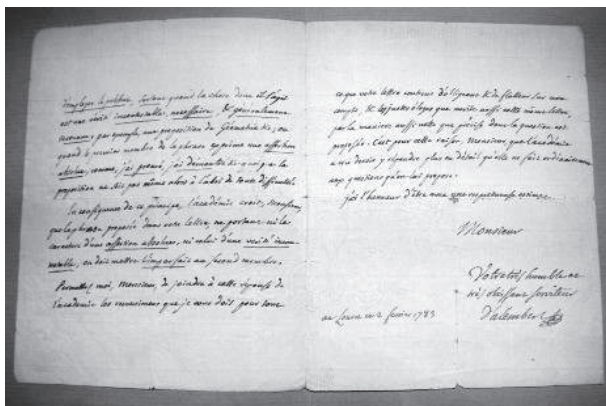 d'employer le présent, surtout quand la chose dont il s'agit
est une vérité incontestable, nécessaire, & généralement
reconnue, par exemple, une proposition de Géométrie &c; ou
quand le premier membre de la phrase exprime une assertion
absolue, comme, j'ai prouvé, j'ai démontré &c quoique la
proposition ne soit pas même alors à l'abri de toute difficulté.
En conséquence de ce principe, l'académie croit, Monsieur,
que la phrase proposée dans votre lettre, ne portant ni le
caractère d'une assertion absolue, ni celui d'une vérité incon-
testable, on doit mettre l'imparfait au second membre.
Permettez moi, Monsieur, de joindre à cette réponse de
l'académie les remerciemens que je vous dois pour tout
ce que votre lettre contient d'obligeant & de flatteur sur mon
compte, & les justes éloges que mérite aussi cette même lettre,
par la manière aussi nette que précise dont la question est
proposée. C'est pour cette raison, Monsieur, que l'académie
a cru devoir y répondre plus en détail qu'elle ne fait ordinairement
aux questions qu'on lui propose.
j'ai l'honneur d'être avec une respectueuse estime,
Monsieur
Votre très humble et
très obéissant serviteur
D'alembert
au Louvre ce 2 1783